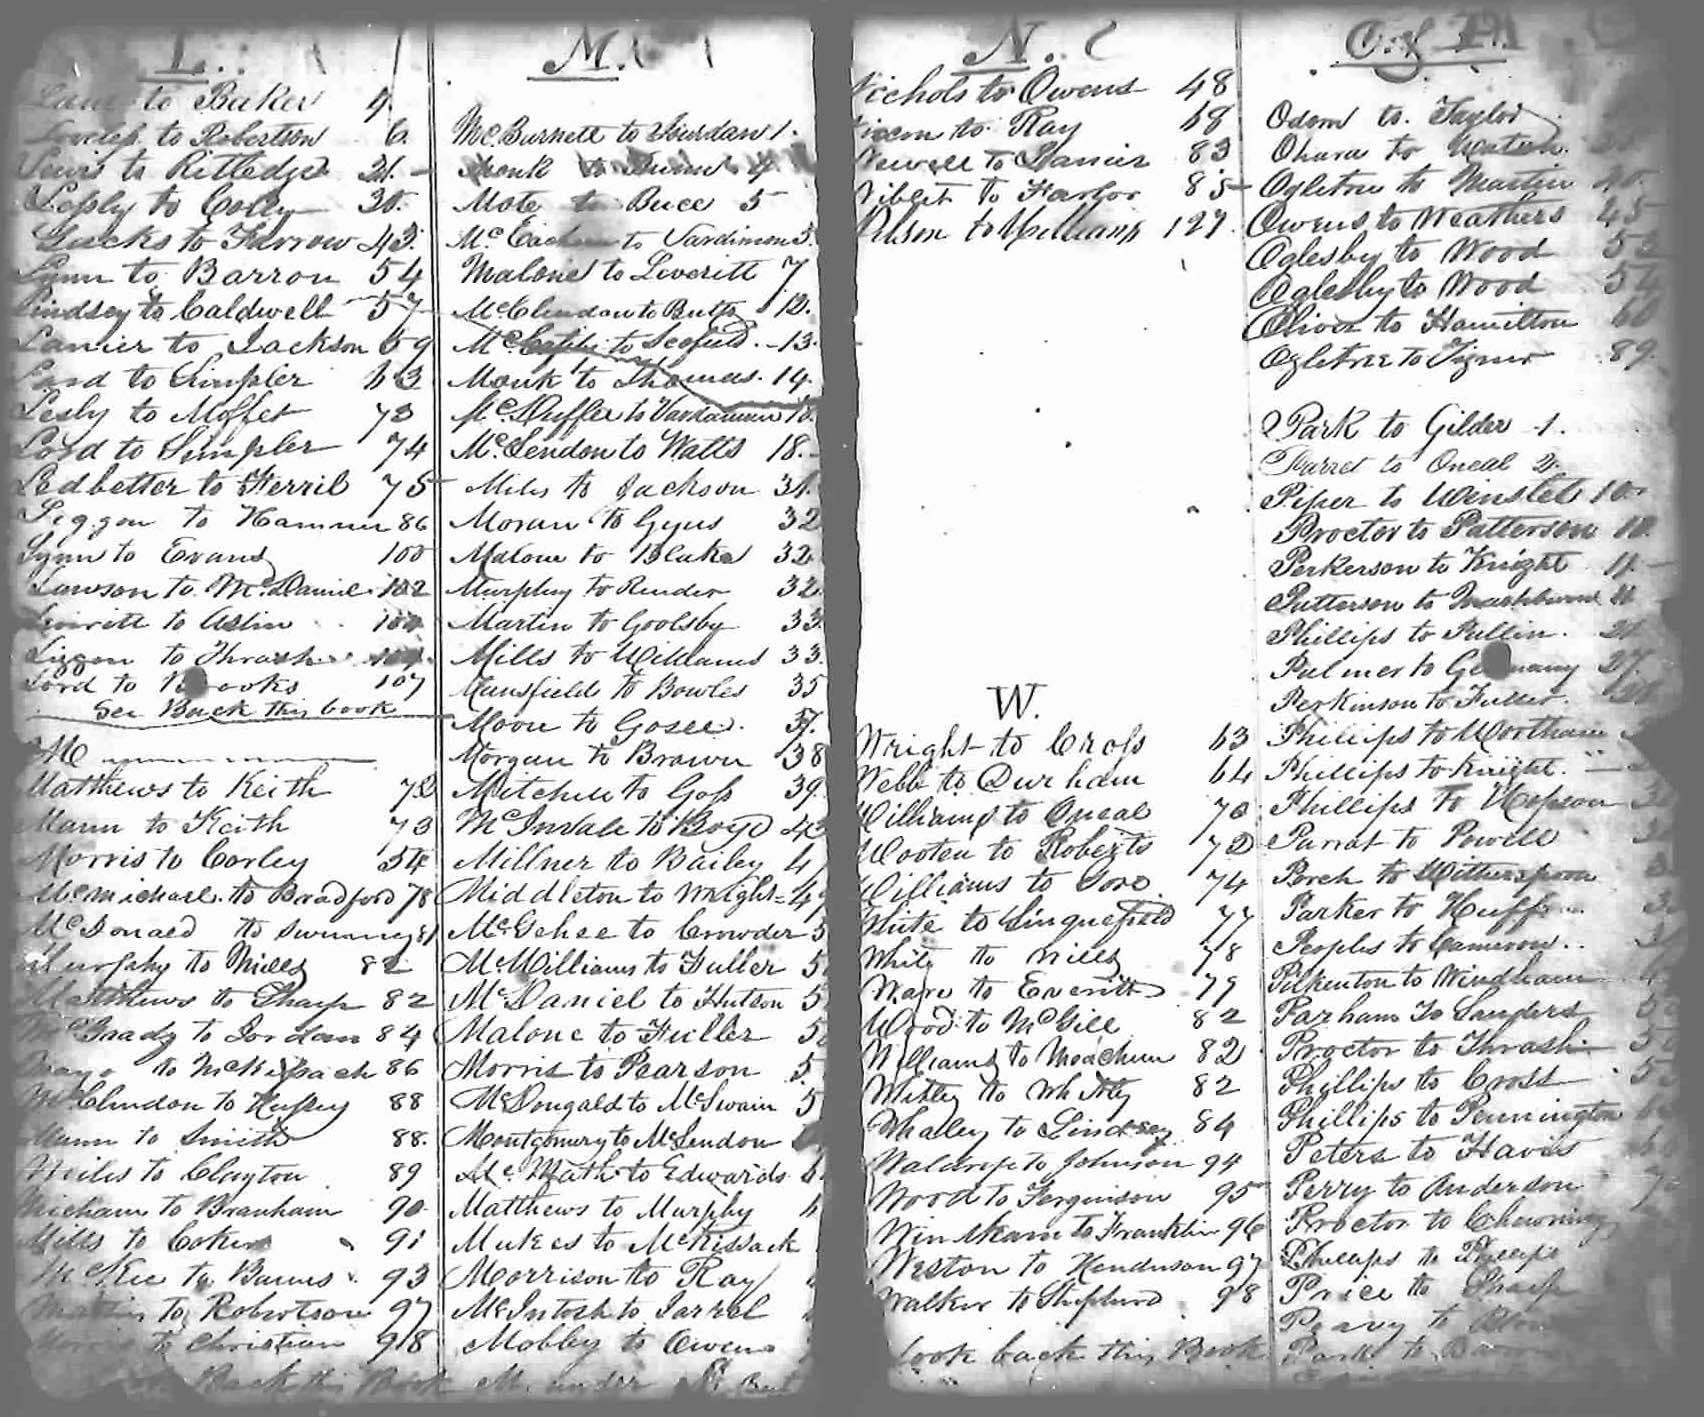 L.
Lane to Baker 4.
Lovelass to Robertson 6.
Lewis to Rutledge 31.
Lessly to Colly 30.
Lucks to Farrow 43.
Lynn to Barron 54
Lindsey to Caldwell 57
Lanier to Jackson 59
Lard to Simpler 63
Lesly to Moffet 73
Lord to Simpler 74
Ledbetter to Herril 75
Liggon to Hammer 86
Lynn to Evans 100
Lawson to McDaniel 102
Leverett to Aslin 104
Liggon to Thrash
Lord to Brooks 107
See Back this book
M
Matthews to Keith 72
Mann to Keith 73
Morris to Corley 54
McMichael to Bradford 78
McDonald to Swinney 81
Murphy to Mills 82
Matthews to Tharp 82
McGrady to Jordan 84
Mayo to McKissack 86
McClendon to Huffey 88
Mann to Smith 88.
Miles to Clayton 89
Micham to Branham 90.
Mills to Coker 91
McKee to Barnes 93
Martin to Robertson 97
Morris to Christian 98
Back this Book
M.
McBurnett to Jourdan 1.
Monk to 4
Mote to Buce 5
McEachern to Vardiman 5.
Malone to Leveritt 7
McClendon to Butts 12.
to Scofield 13.
Monk to Thomas. 14.
McDuffee to Vardaman 18.
McLendon to Watts 18.
Miles to Jackson 31.
Moran to Gyus 32
Malone to Blake 32
Murphy to Render 32
Martin to Goolsby 33
Mills to Williams 33.
Mansfield to Bowles 35
Moore to Gosee. 37.
Morgan to Brown 38
Mitchell to Goss 39.
McInvale to Boyd 43
Millner to Bailey 4
Middleton to Wright 49
McGehee to Crowder 5
McWilliams to Fuller 5
McDaniel to Hutson 5
Malone to Fuller 5
Morris to Pearson 5
McDougald to McSwain 5
Montgomery to McLendon
McMath to Edwards 6
Matthews to Murphy 6
Mukes to McKissack
Morrison to Ray
McIntosh to Jarrel
Mobley to Owens
M. under
N.
Nichols to Owens 48
Nixon to Ray 68
Newell to Lanier 83
Niblet to Harbor 85
Nilson to Williams 127.
W.
Wright to Cross 63
Webb to Durham 64
Williams to Oneal 70
Wooten to Roberts 72
Williams to Gore 74
White to Singuefield 77
White to Mills 78
Ware to Everitt 79
Wood to McGill 82
Williams to Meachum 82
Whitley to Whitley 82
Whaley to Lindsey 84
Waldrope to Johnson 94
Wood to Ferguson 95
Windham to Franklin 96
Weston to Henderson 97
Walker to Shepherd 98
Look back this Book
O. & P.
Odom to Taylor
Ohara to
Ogletree to Martin 40.
Owens to Weathers 45
Oglesby to Wood 52
Oglesby to Wood 54
Oliver to Hamilton 60
Ogletree to Tigner 89.
Park to Gilder 1.
Parret to Oneal 2.
Piper to Winslet 10.
Proctor to Patterson 10.
Perkerson to Knight 11
Patterson to Mashburn 11
Phillips to Pullin. 20.
Palmer to Germany 27.
Perkinson to Fuller.
Phillips to Wortham
Phillips to Knight.
Phillips to Hopson
Parrat to Powell
Porch to Witherspoon
Parker to Huff
Peoples to Cameron..
Pilkenton to Windham
Parham To Sanders
Proctor to Thrash
Phillips to Cross
Phillips to Pennington
Peters to Havis
Perry to Anderson
Proctor to Chewning
Phillips to Phillips
Price to Tharp
Peavy to
Park to